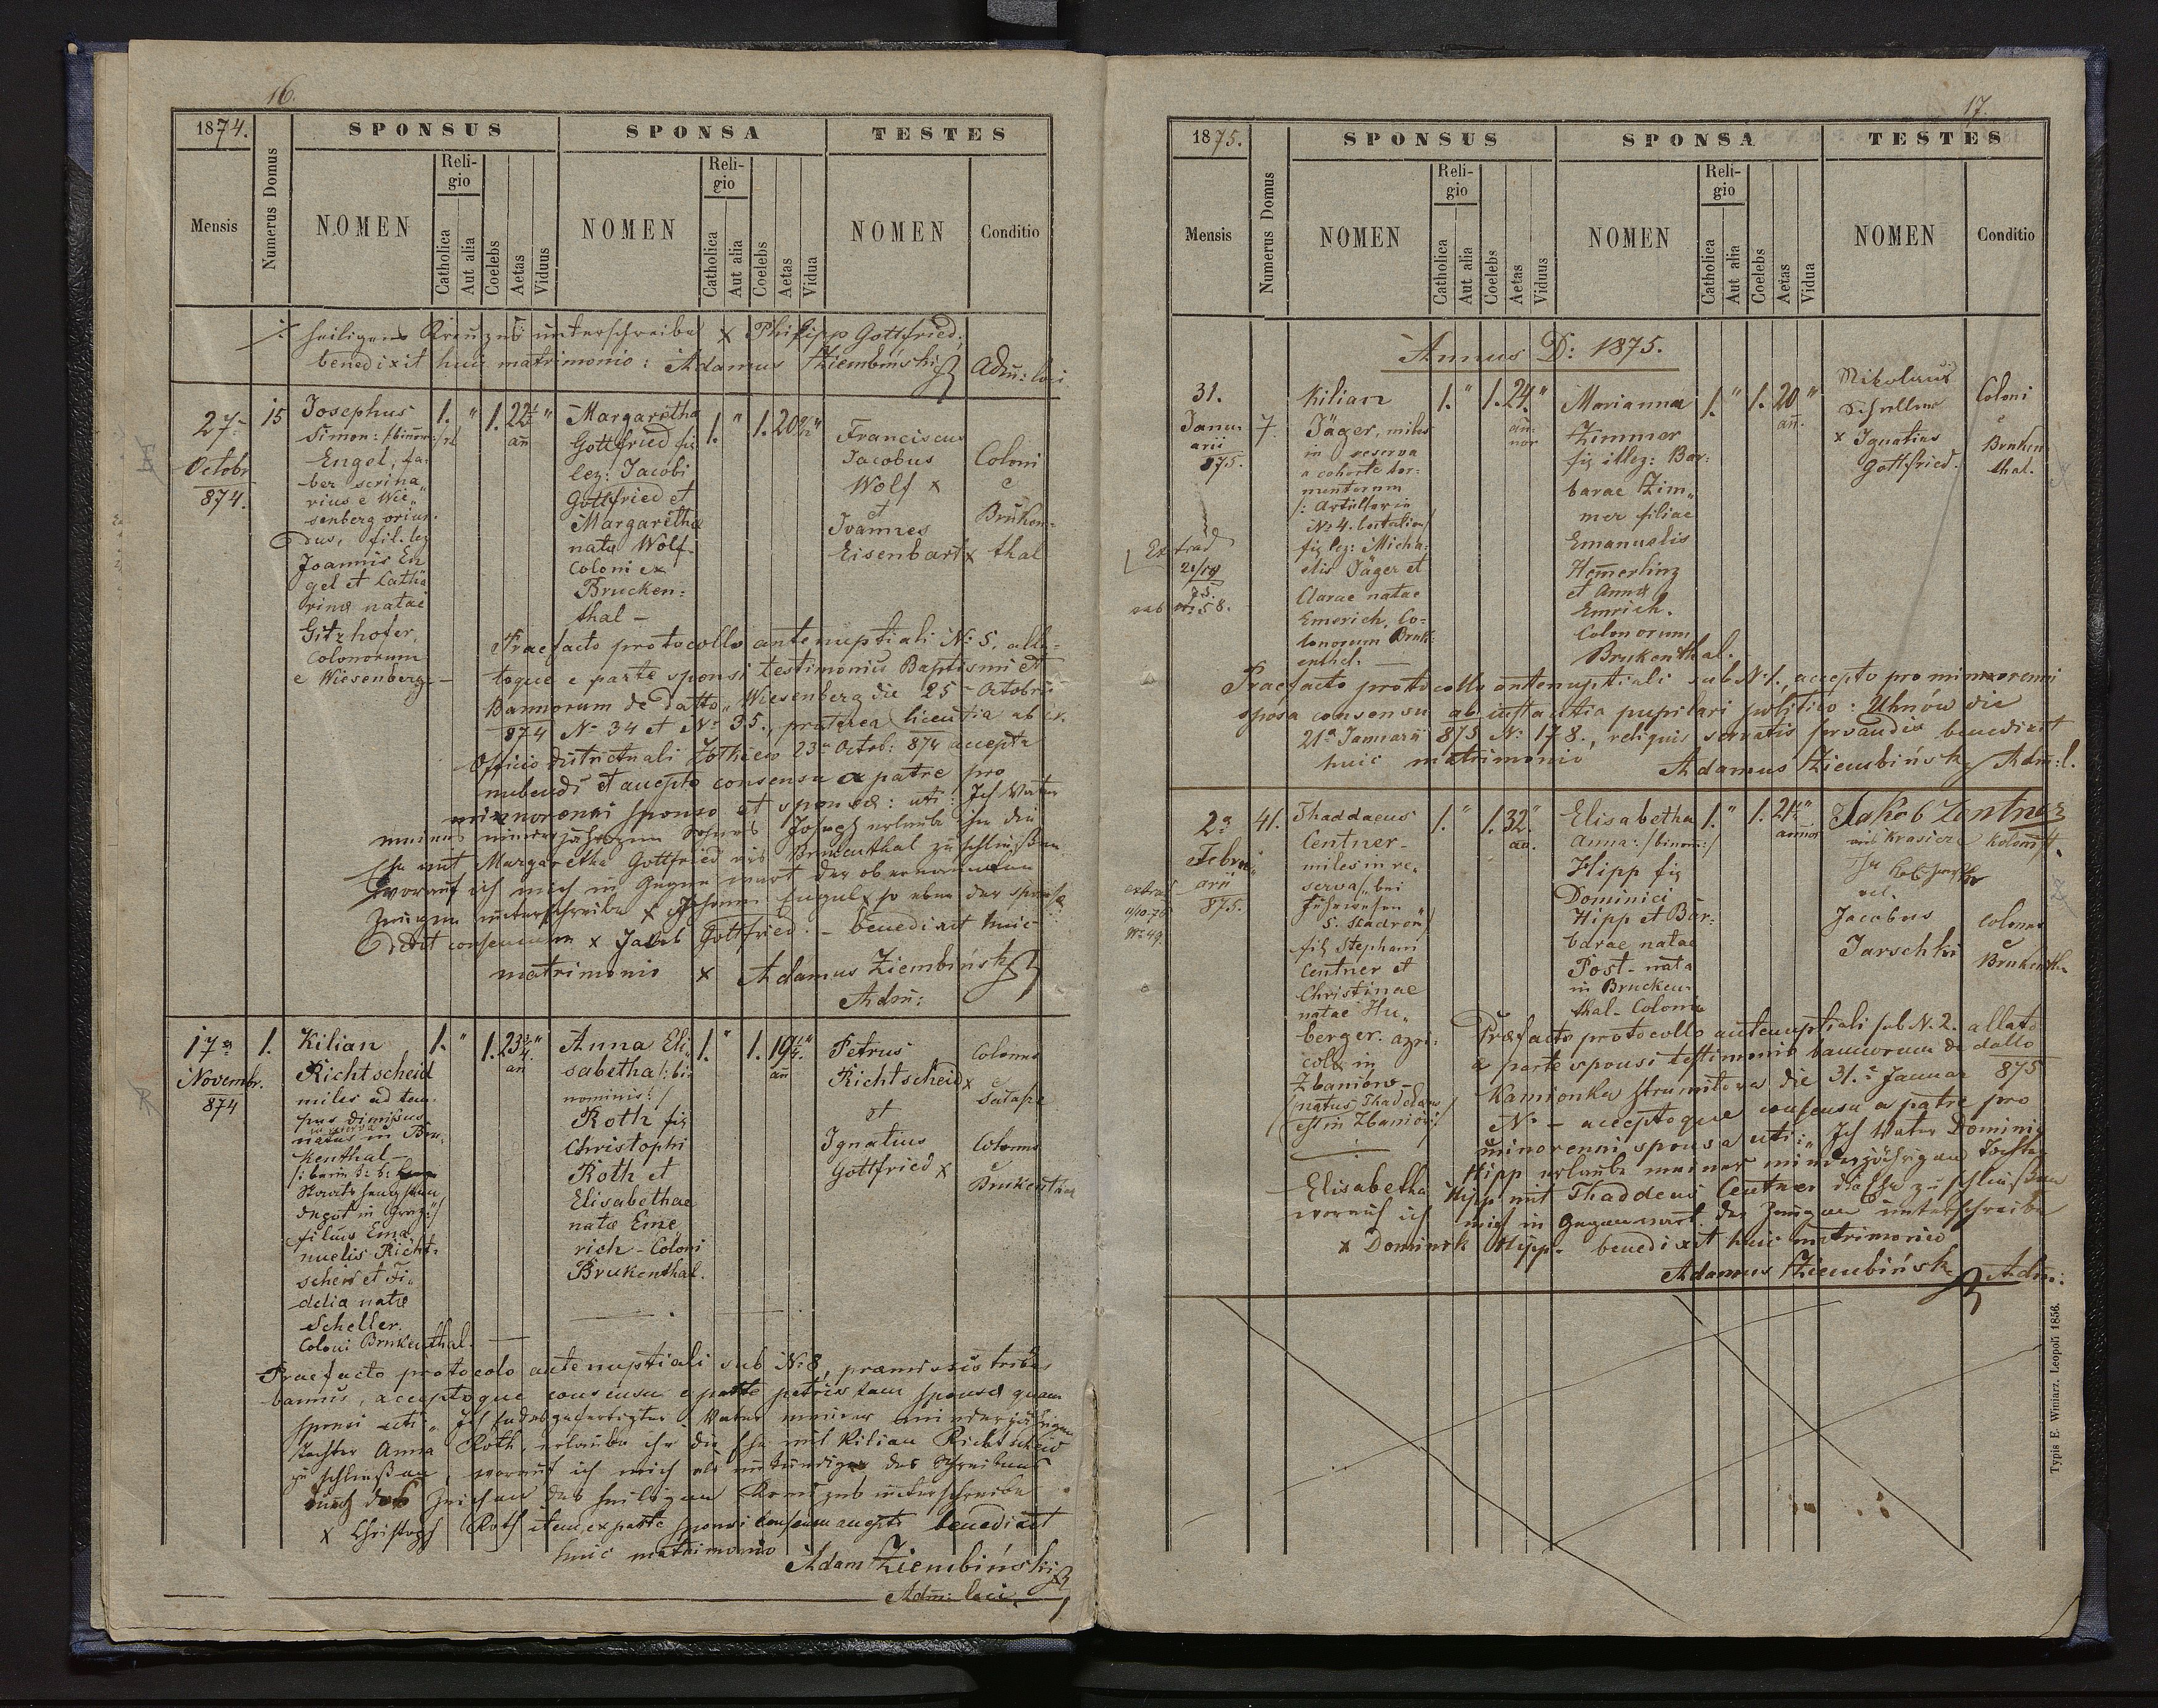 16.
1874.
SPONSUS
SPONSA
TESTES
Mensis
Numerus Domus
NOMEN
Religio
Catholica
Aut alia
Coelebs
Aetas
Viduus
NOMEN
Religio
Catholica
Aut alia
Coelebs
Aetas
Vidua
NOMEN
Conditio
heiligens Kreuzes unterschreibe x Philipp Gottfried;
benedixit huic matrimonio: Adamus Ziembiński Adm: loci
27
Octobr
874.
15
Josephus
Simon: /:binom:/
Engel, fa-
ber scrina„
rius e Wie„
senberg oriun-
dus, fil. leg
Joannis En
gel et Catha
rina natae
Gitzhofer,
Colonorum
e Wiesenberg –
1. " 1. 22½ "
an
Margaretha
Gottfried fi
leg: Jacobi
Gottfried et
Margaretha
nata Wolf.
Coloni ex
Brucken:
thal –
1. " 1. 20 "
Franciscus
Jacobus
Wolf x
et
Ioannes
Eisenbart x
Coloni
e
Bruken-
thal
Praefacto protocollo antenuptiali № 5, alla-
toque e parte sponsi testimonio Baptismi et
Bannorum de datto „Wiesenberg die 25 Octobris
874 № 34 et № 35., praeterea licentia ab
Officio districtuali Zolkiew 23 Octob: 874 accepta
nubendi et accepto consensu a patre pro
minorenni sponso et sponsa: uti: Ich Vater
meines minderjährigen Sohnes Joseph erlaube ihm die
Ehe mit Margaretha Gottfried aus Brukenthal zu schließen
worauf ich mich in Gegenwart der obernannten
Zeugen unterschreibe x Johann Engel x so eben der sponsa
dedit consensum x Jacob Gottfried. – benedixit huic
matrimonio x Adamus Ziembiński
Adm:
17a
Novembr.
874
1.
Kilian
Richtscheid
miles ad tem-
pus dimißus
in reserva
natus in Bru-
kenthal –
filius Ema
nuelis Richt-
scheid et Fi-
delia nata
Scheller.
Coloni Brukenthal.
1. " 1. 23¾ "
an
Anna Eli„
sabetha /:bi
nominis:/
Roth fi
Christophi
Roth et
Elisabethae
nata Eme
rich – Coloni
Brukenthal.
1. " 1. 19¼ "
an
Petrus
Richtscheid x
et
Ignatius
Gottfried x
Colonus
e
Colonus
e
Brukenthal
Praefacto protocolo antenuptiali sub № 8, praemissis tribus
bannis, acceptoque consensu e parte patris tam sponsa quam
sponsi uti „Ich Endesgefertigter Vater meiner minderjährigen
Tochter Anna Roth, erlaube ihr die Ehe mit Kilian Richtscheid
zu schließen, worauf ich mich als unkundiger des Schreibens
durch das Zeichen des heiligen Kreuzes unterschreibe
x Christoph Roth item ex parte sponsi consensu accepto benedixit
huic matrimonio Adam Ziembiński
Adm: loci
17.
1875.
SPONSUS
SPONSA
TESTES
Mensis
Numerus Domus
NOMEN
Religio
Catholica
Aut alia
Coelebs
Aetas
Viduus
NOMEN
Religio
Catholica
Aut alia
Coelebs
Aetas
Vidua
NOMEN
Conditio
Annus D: 1875.
31.
Janu-
arii
875.
Extrad
sub № 58.
7
Kilian
Jäger, miles
in reserva
a cohorte tor-
mentorum
/: Artillerie
№ 4. bataliou/
fi leg: Micha-
elis Jäger et
Clarae natae
Emerich, Co-
lonorum Bruk-
enthal. –
1. " 1. 24. "
an-
nor
Marianna
Zimmer
fi illeg: Bar-
barae Zim„
mer filiae
Emanuelis
Hemerling
et Anna
Emrich.
Colonorum
Brukenthal.
1. " 1. 20 "
an.
Nikolaus
x Ignatius
Gottfried.
Coloni
e
Bruken
thal.
Praefacto protocollo antenuptiali sub № 1., accepto pro minorenni
sposa consensu ab instantia pupilari politico: Uhnów die
21a Januarii 875 № 178., reliquis servatis servandis benedixit
huic matrimonio Adamus Ziembiński Adm: l.
2a
Febru„
arii
875.
extrad
№ 49.
41.
Thaddaeus
Centner –
miles in re„
serva /„bei
Fuhrwesen
5. Escadron/
fi Stephani
Centner et
Christinae
natae Hu„
berger. agri-
cola in
Zbaniow –
/natus Thaddaeus
est in Zbaniow/
1. " 1. 32. "
an.
Elisabetha
Anna: /:binom:/
Hipp fi
Dominici
Hipp et Bar-
barae natae
Post – nata
in Brucken-
thal – Colonia
1. " 1. 21 "
annor
Jakob Zentner
Kolonist.
Jacobus
Jarschki
colonus
e
Brukenthal
Praefacto protocollo antenuptiali sub N. 2. allato
a parte sponsi testimonio bannorum de datto
Kamionka strumilowa die 31. Januar 875
№ – acceptoque consensu a patre pro
minorenni sponsa uti: „Ich Vater Dominik
Hipp erlaube meiner minderjährigen Tochter
Elisabetha Hipp mit Thaddeus Centner die Ehe zu schließen
worauf ich mich in Gegenwart der Zeugen unterschreibe
x Dominik Hipp – benedixit huic matrimonio
Adamus Ziembiński Adm:
Typis E. Winiarz, Leopoli 1856.